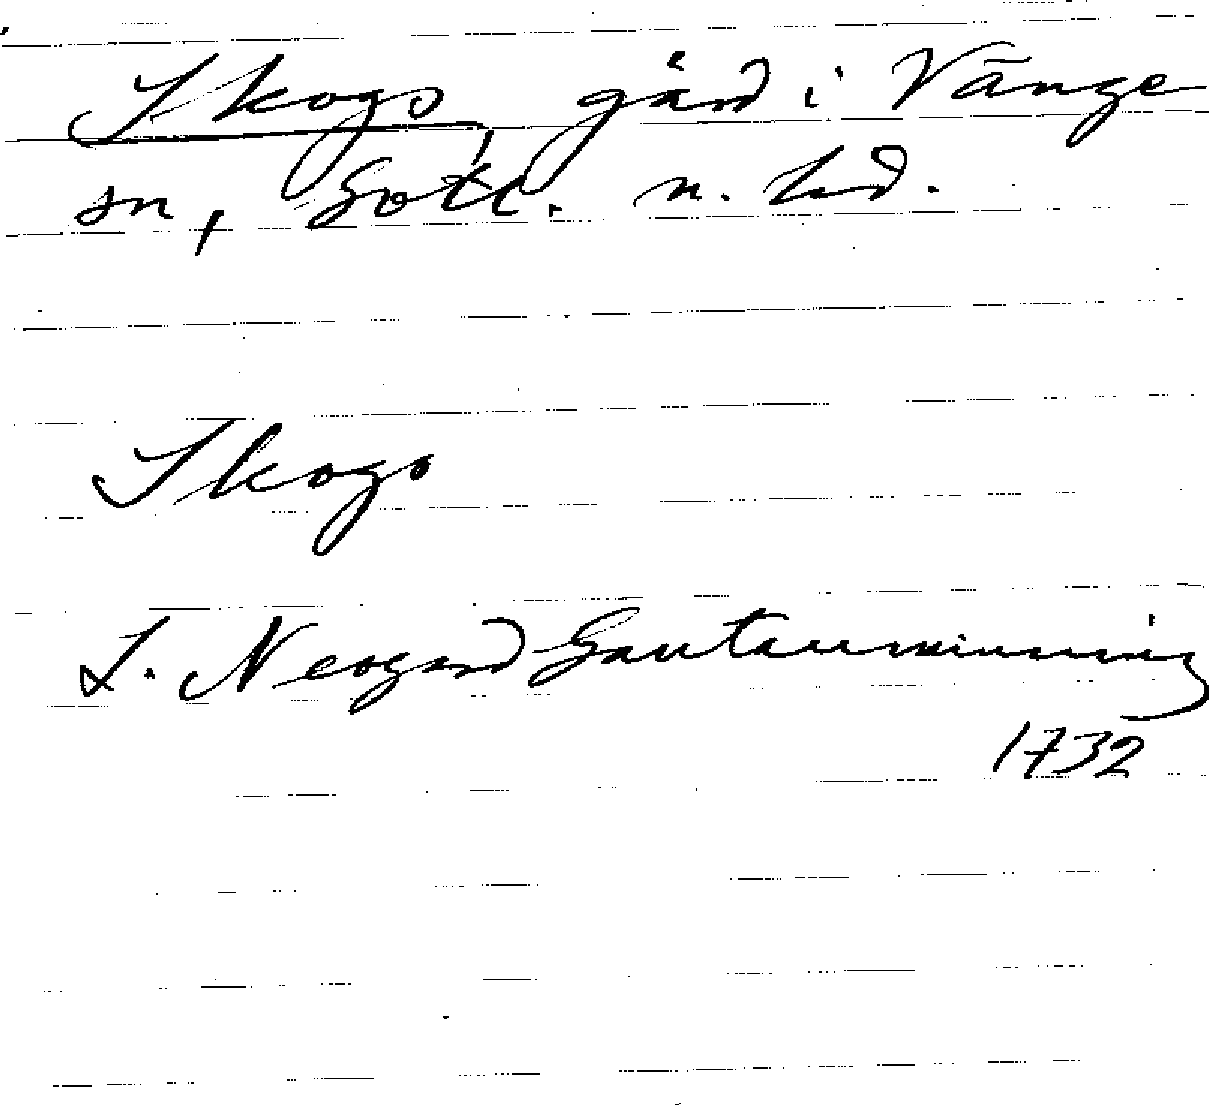 Skogs, gård i Vänge
sn, Gotl. n. hd.
Skogs
L. Neogard Gautauminning
1732